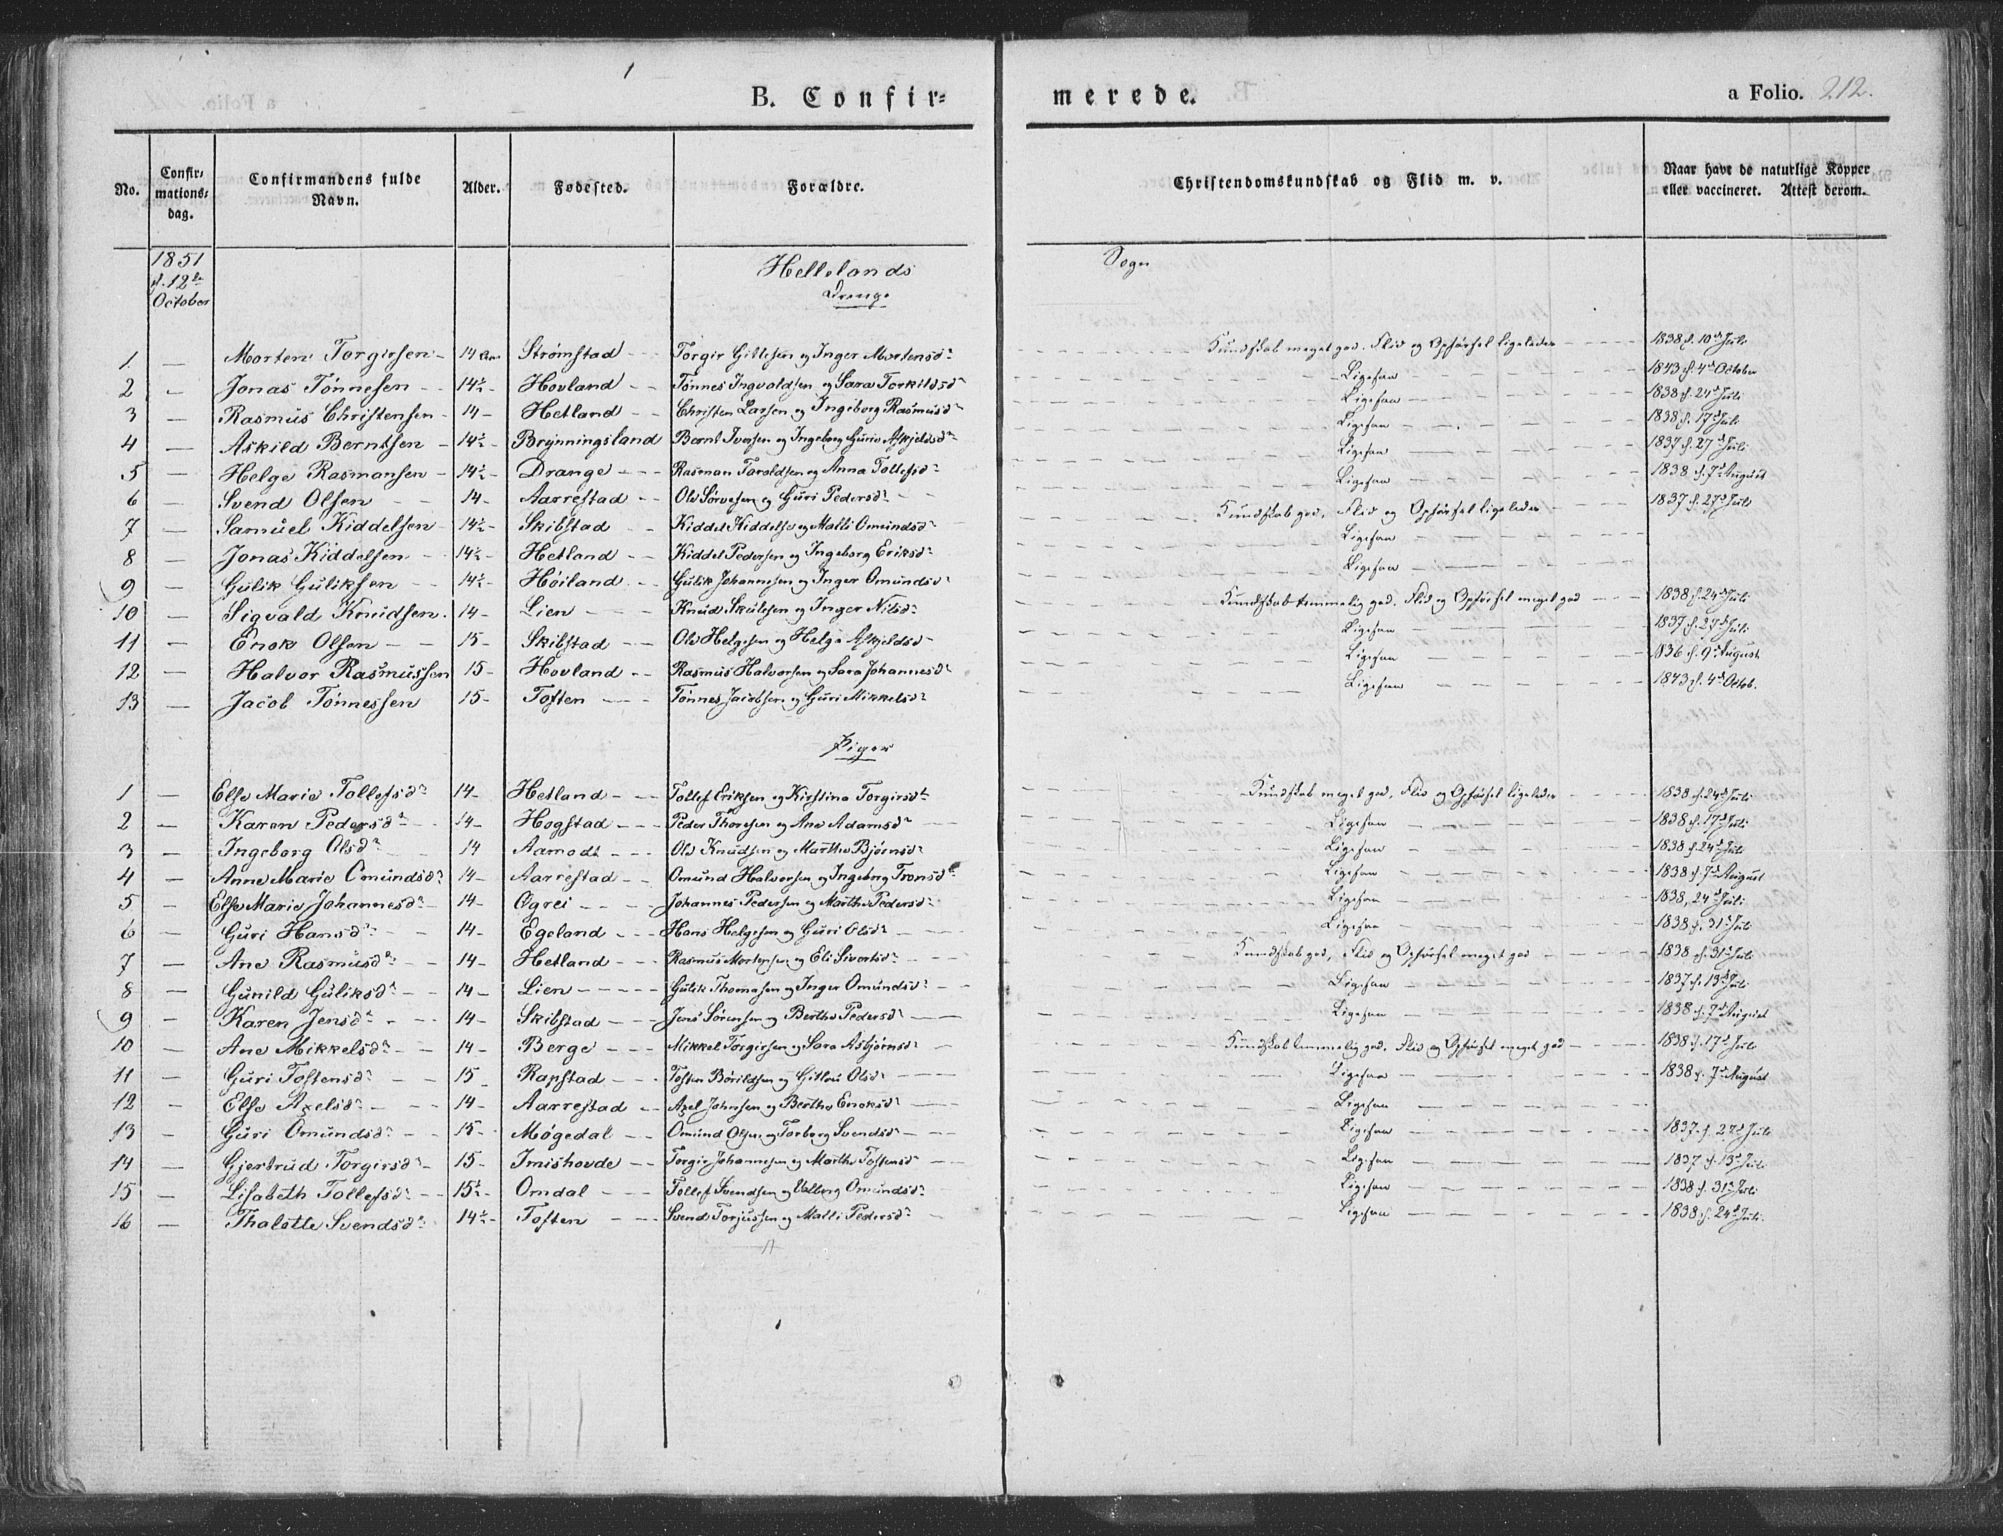 B. Confir=
merede.
a Folio. 212.
No.
Confir=
mations=
dag.
Confirmandens fulde
Navn.
Alder.
Fødested.
Forældre.
Christendomskundskab og Flid m. v.
Naar havt de naturlige Kopper
eller vaccineret. Attest derom.
1851
d. 12te
October
Hellelands Sogn
Drenge
1 — Morten Torgirsen 14 Strømstad — Torgir Gittesen og Inger Mortensdr Kundskab meget god. Flid og Opførsel ligeledes — 1838 d. 10d Juli
2 — Jonas Tønnesen — 14½ Hovland — Tønnes Ingvoldsen og Sara Torkildsdr Ligesaa — 1843 d. 4d October
3 — Rasmus Christensen 14 — Hetland — Christen Larsen og Ingeborg Rasmusdr Ligesaa — 1838 d. 24d Juli
4 — Askild Berntsen — 14½ Brynningsland Bernt Iversen og Ingeborg Gurie Askjeldsdr Ligesaa — 1838 d. 17d Juli
5 — Helge Rasmansen — 14½ Drange — Rasman Toroldsen og Anna Tollefsdr Ligesaa — 1837 d. 27d Juli
6 — Svend Olsen — 14 — Aarrestad — Ole Sørvesen og Guri Pedersdr Ligesaa — 1838 d. 7d August
7 — Samuel Kiddelsen — 14½ Skibstad — Kiddel Kiddelsen og Malli Omundsdr Kundskab god, Flid og Opførsel ligeledes — 1837 d. 27d Juli
8 — Jonas Kiddelsen — 14½ Hetland — Kiddel Pedersen og Ingeborg Eriksdr Ligesaa —
9 — Gulik Guliksen — 14½ Høiland — Gulik Johannesen og Inger Omundsdr Ligesaa —
10 — Sigvald Knudsen. 14 — Lien — Knud Skulesen og Inger Nilsdr Kundskab temmelig god. Flid og Opførsel meget god — 1838 d. 24d Juli
11 — Enok Olsen — 15 — Skibstad — Ole Helgesen og Helga Askjeldsdr Ligesaa — 1837 d. 27d Juli
12 — Halvor Rasmussen 15 — Hovland — Rasmus Halvorsen og Sara Johannesdr Ligesaa — 1836 d. 9d August
13 — Jacob Tønnessen 15 — Tosten — Tønnes Jacobsen og Guri Mikkelsdr Ligesaa — 1843 d. 4d Octob.
Piger
1 — Else Marie Tollefsdr 14 — Hetland — Tollef Eriksen og Kirstina Torgirsdr Kundskab meget god, Flid og Opførsel ligeledes — 1838 d. 24d Juli
2 — Karen Pedersdr 14 — Hogstad — Peder Thoresen og Ane Adamsdr Ligesaa — 1838 d. 17d Juli
3 — Ingeborg Olsdr 14 Aamodt — Ole Knudsen og Marthe Bjørnsdr Ligesaa — 1838 d. 24d Juli
4 — Anne Marie Omundsdr 14 — Aarrestad — Omund Halvorsen og Ingeborg Tronsdr Ligesaa — 1838 d. 7d August
5 — Else Marie Johannesdr 14 — Ogrei — Johannes Pedersen og Marthe Pedersdr Ligesaa — 1838, 24d Juli
6 — Guri Hansdr 14 — Egeland — Hans Helgesen og Guri Olsdr Ligesaa — 1838 d. 31d Juli
7 — Ane Rasmusdr 14 — Hetland — Rasmus Mortensen og Eli Sivertsdr Kundskab god, Flid og Opførsel meget god — 1838 d. 31d Juli
8 — Gunild Guliksdr 14 — Lien — Gulik Thomasen og Inger Omundsdr Ligesaa — 1837 d. 13d Juli
9 — Karen Jensdr 14 — Skibstad — Jens Sørensen og Berthe Pedersdr Ligesaa — 1838 d. 7d August
10 — Ane Mikkelsdr 14 — Berge — Mikkel Torgirsen og Sara Asbjørnsdr Kundskab temmelig god, Flid og Opførsel meget god — 1838 d. 17d Juli
11 — Guri Tostensdr — 15 — Rapstad — Tosten Børildsen og Gitlou Olsdr Ligesaa — 1838 d. 7d August
12 — Else Axelsdr — 14 — Aarrestad — Axel Johnsen og Berthe Enoksdr Ligesaa —
13 — Guri Omundsdr — 15 — Møgedal — Omund Olsen og Torborg Svendsdr Ligesaa — 1837 d. 27d Juli
14 — Gjertrud Torgirsdr 15 — Imishovde — Torgir Johannesen og Marthe Tostensdr Ligesaa — 1837 d. 13d Juli
15 — Lisabeth Tollefsdr 15½ Omdal — Tollef Svendsen og Valborg Omundsdr Ligesaa — 1838 d. 31d Juli
16 — Thalette Svendsdr 14½ Tosten — Svend Torjussen og Malli Pedersdr Ligesaa — 1838 d. 24d Juli.